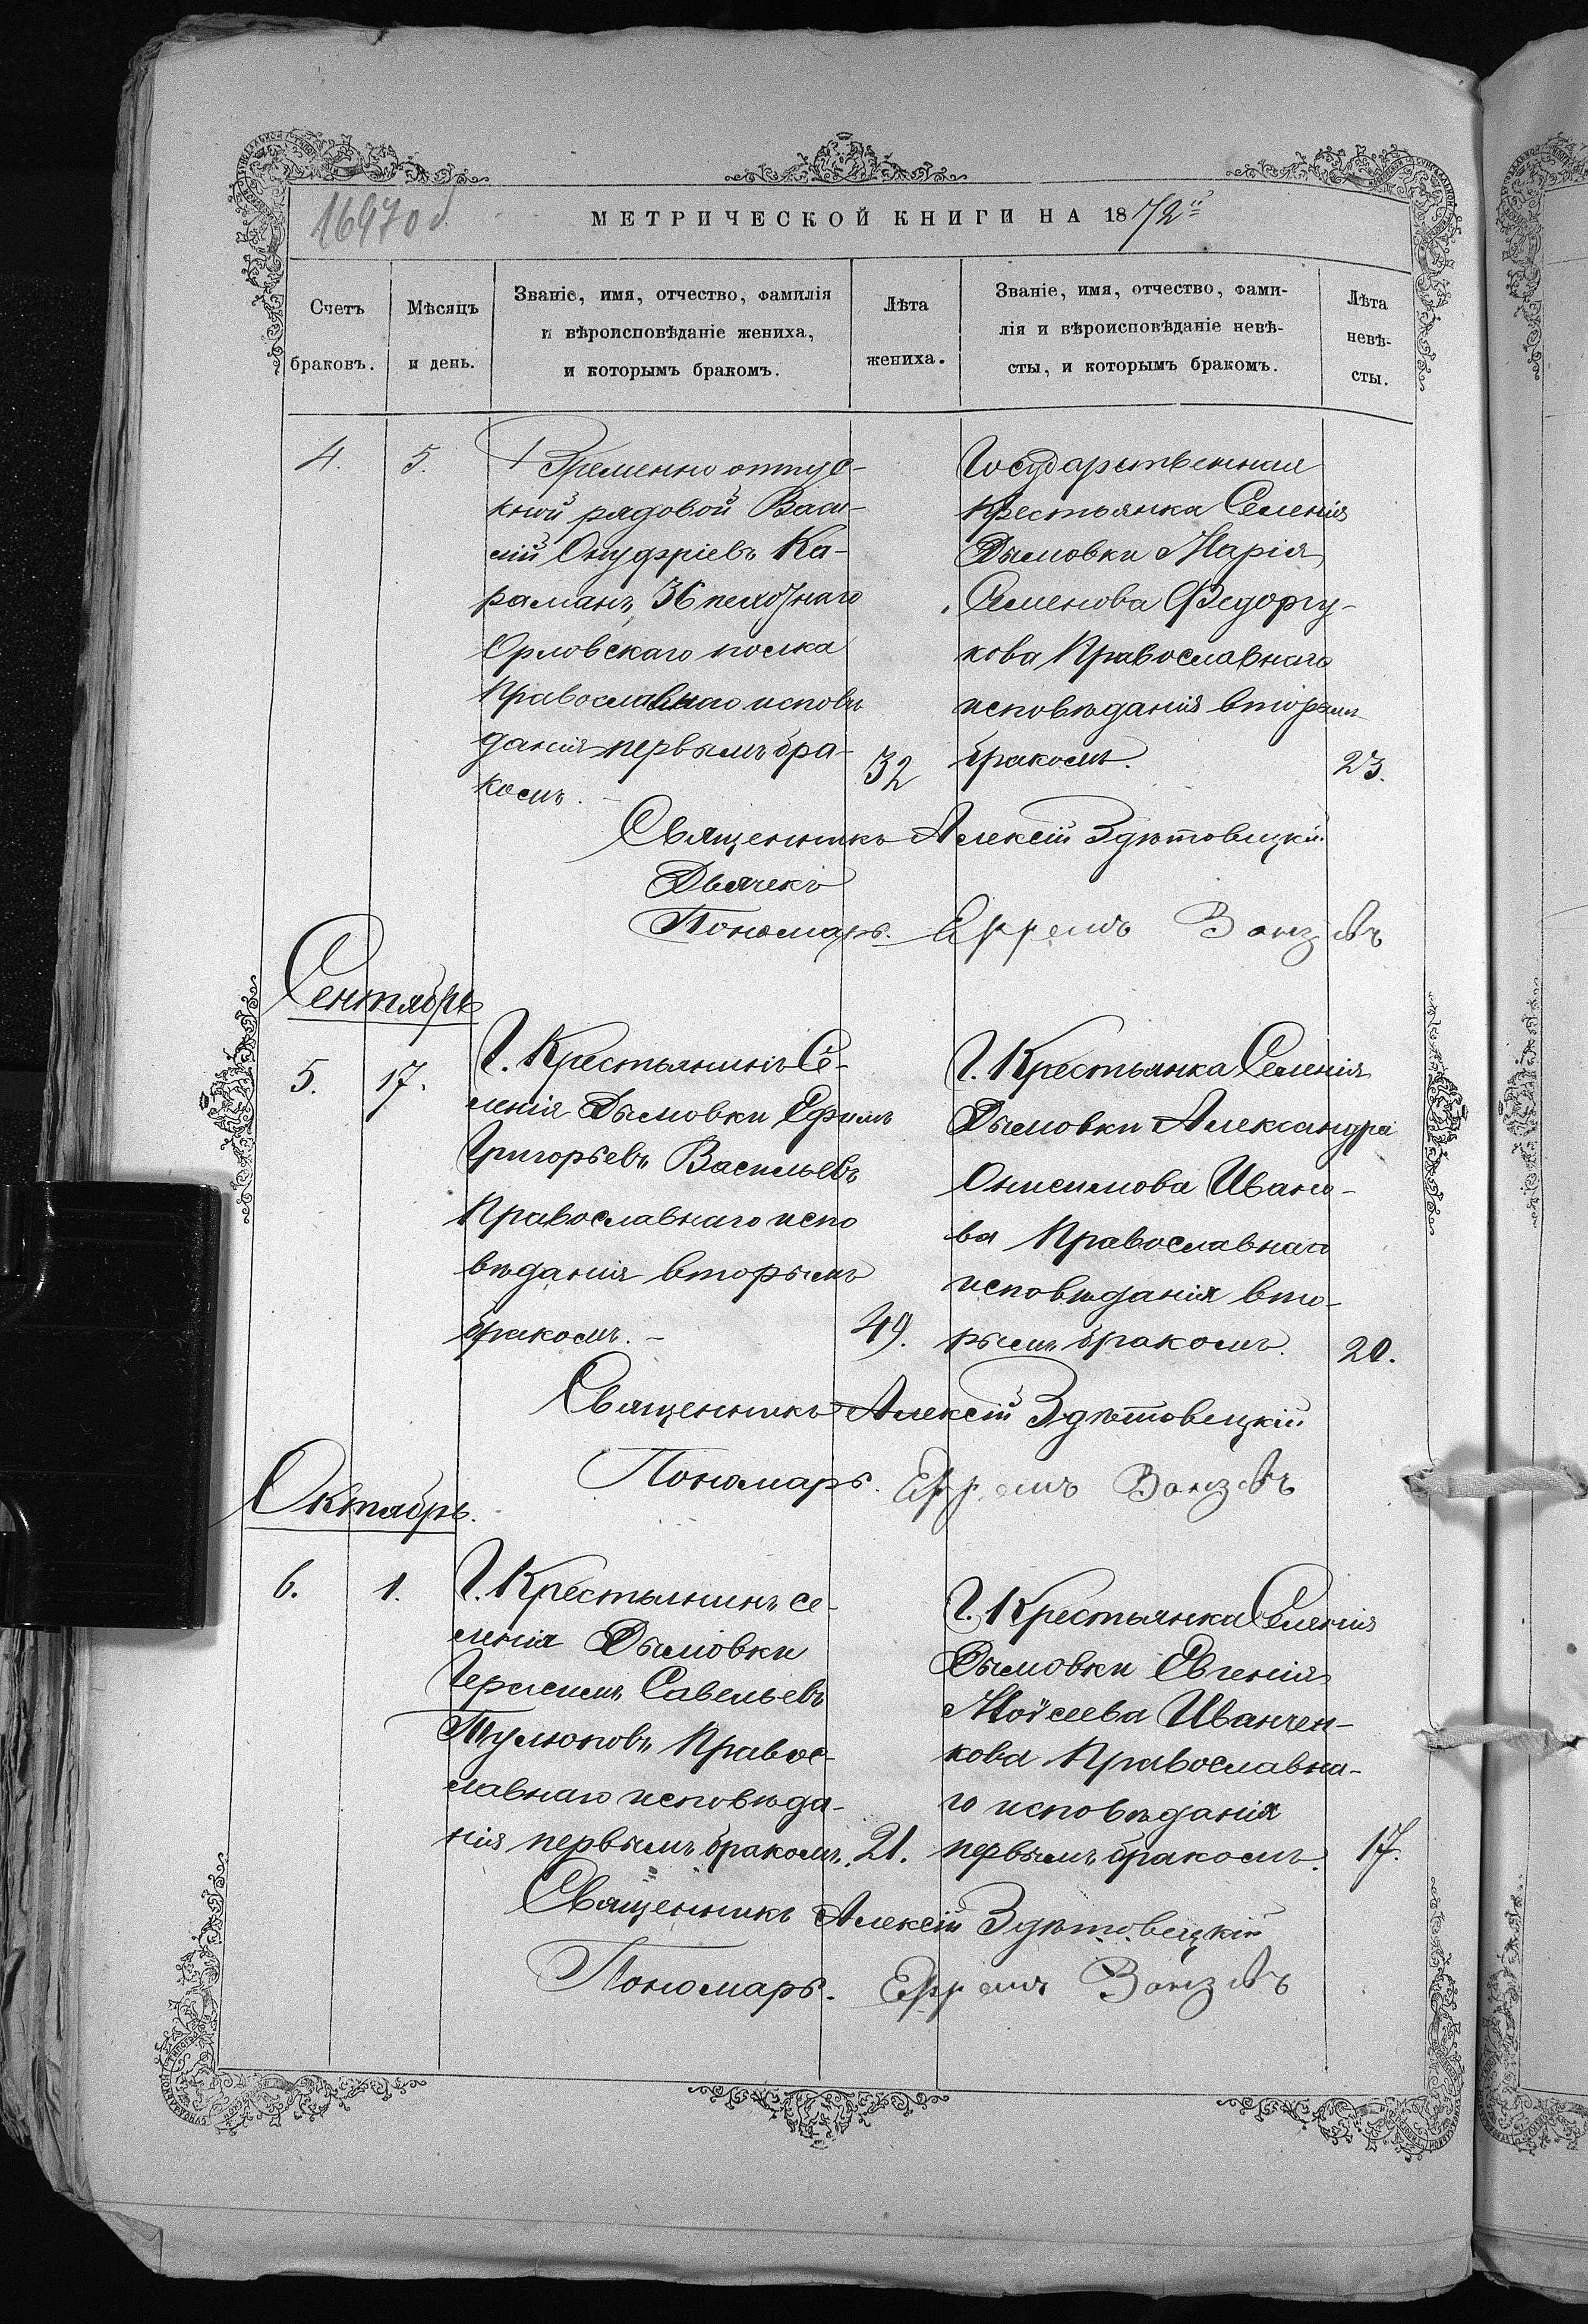 16970 d.
МЕТРИЧЕСКОЙ КНИГИ НА 1872й
Счетъ браковъ.
Мѣсяцъ и день.
Званіе, имя, отчество, фамилія
и вѣроисповѣданіе жениха,
и которымъ бракомъ.
Лѣта жениха.
Званіе, имя, отчество, фами-
лія и вѣроисповѣданіе невѣ-
сты, и которымъ бракомъ.
Лѣта невѣ-
сты.
4.
5.
Временно отпус-
кной рядовой Васи-
лій Онуфріевъ Ка-
раманъ, 36 пехотнаго
Орловскаго полка
Православнаго исповѣ
данія первымъ бра-
комъ. -
32
Государственная
крестьянка Селенія
Дымовки Марія
Семенова Федорчу-
кова Православнаго
исповѣданія вторымъ
бракомъ.
23.
Священникъ Алексій Здѣтовецкій
Дьячекъ
Пономарь. Ефремъ
Сентябрь
5.
17.
Г. Крестьянинъ Се-
ленія Дымовки Ефимъ
Григорьевъ Васильевъ
Православнаго испо
вѣданія вторымъ
бракомъ. -
49.
Г. Крестьянка Селенія
Дымовки Александра
Онисимова Ивано-
ва Православнаго
исповѣданія вто-
рымъ бракомъ.
20.
Священникъ Алексій Здѣтовецкій
Пономарь. Ефремъ
Октябрь.
6.
1.
Г. Крестьянинъ се-
ленія Дымовки
Герасимъ Савельевъ
Тулюповъ Правос-
лавнаго исповѣда-
нія первымъ бракомъ.
21.
Г. Крестьянка Селенія
Дымовки Евгенія
Моѵсеева Иванчен-
кова Православна-
го исповѣданія
первымъ бракомъ.
17.
Священникъ Алексій Здѣтовецкій
Пономарь. Ефремъ